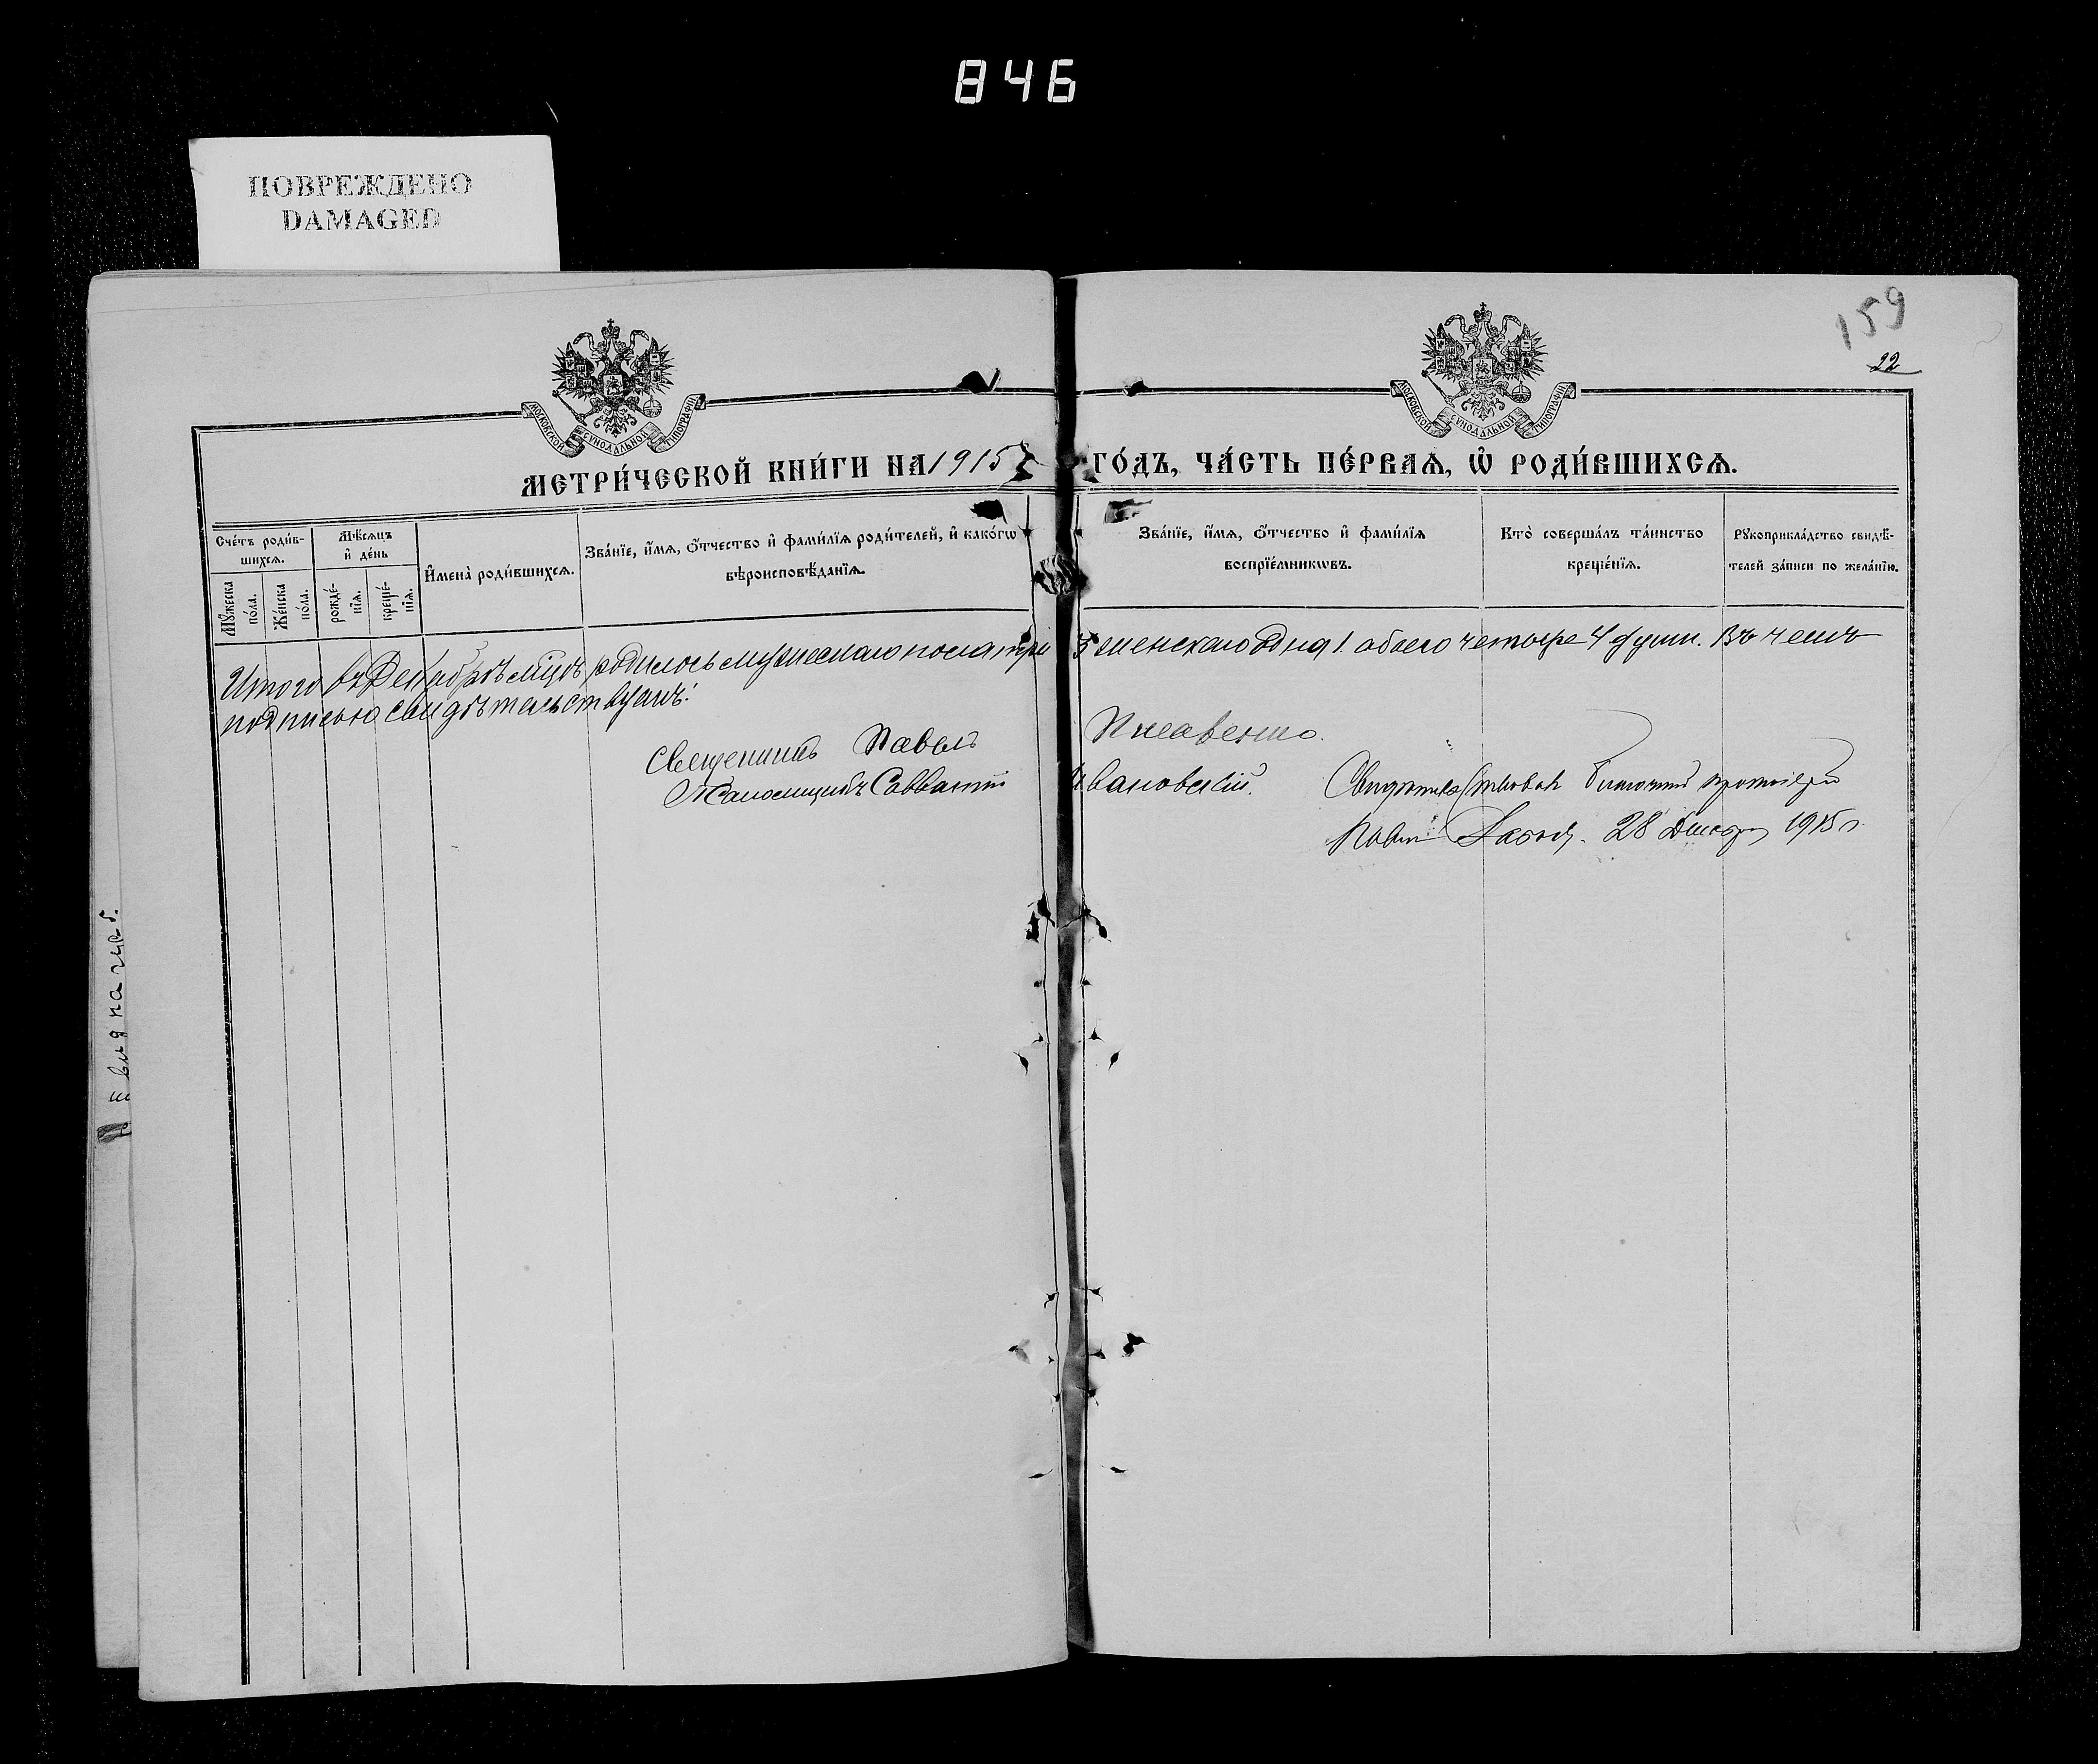 846
ПОВРЕЖДЕНО
DAMAGED
159
22
МОСКОВСКОЙ СѴНОДАЛЬНОЙ ТИПОГРАФІИ
МОСКОВСКОЙ СѴНОДАЛЬНОЙ ТИПОГРАФІИ
МЕТРИ́ЧЕСКОЙ КНИ́ГИ НА 1915 ГО́ДЪ, ЧА́СТЬ ПЕ́РВАѦ, Ѽ РОДИ́ВШИХСѦ.
Сче́тъ роди́в-
шихсѧ.
Мꙋ́жеска
по́ла.
Же́нска
по́ла.
Мѣ́сѧцъ
и҆ де́нь
рожде́-
нїѧ.
креще́-
нїѧ.
И҆мена̀ роди́вшихсѧ.
Зва́нїе, и҆́мѧ, ѻ҆́тчество и҆ фами́лїѧ роди́телей, и҆ како́гѡ
вѣроисповѣ́данїѧ.
Зва́нїе, и҆́мѧ, ѻ҆́тчество и҆ фами́лїѧ
воспрїе́мникѡвъ.
Кто̀ соверша́лъ та́инство
креще́нїѧ.
Рꙋкоприкла́дство свидѣ́-
телей за́писи по жела́нїю.
Итого въ Декабрѣ мцѣ родилось мужескаго пола три 3 женскаго одна 1. обоего четыре 4 души. Въ чемъ
подписью свидѣтельствуемъ:
Священникъ Павелъ
Псаломщикъ Савватій Ивановскій.
Свидѣтельствовалъ Благочинный протоіерей
Павелъ 28 Декабря 1915 г.